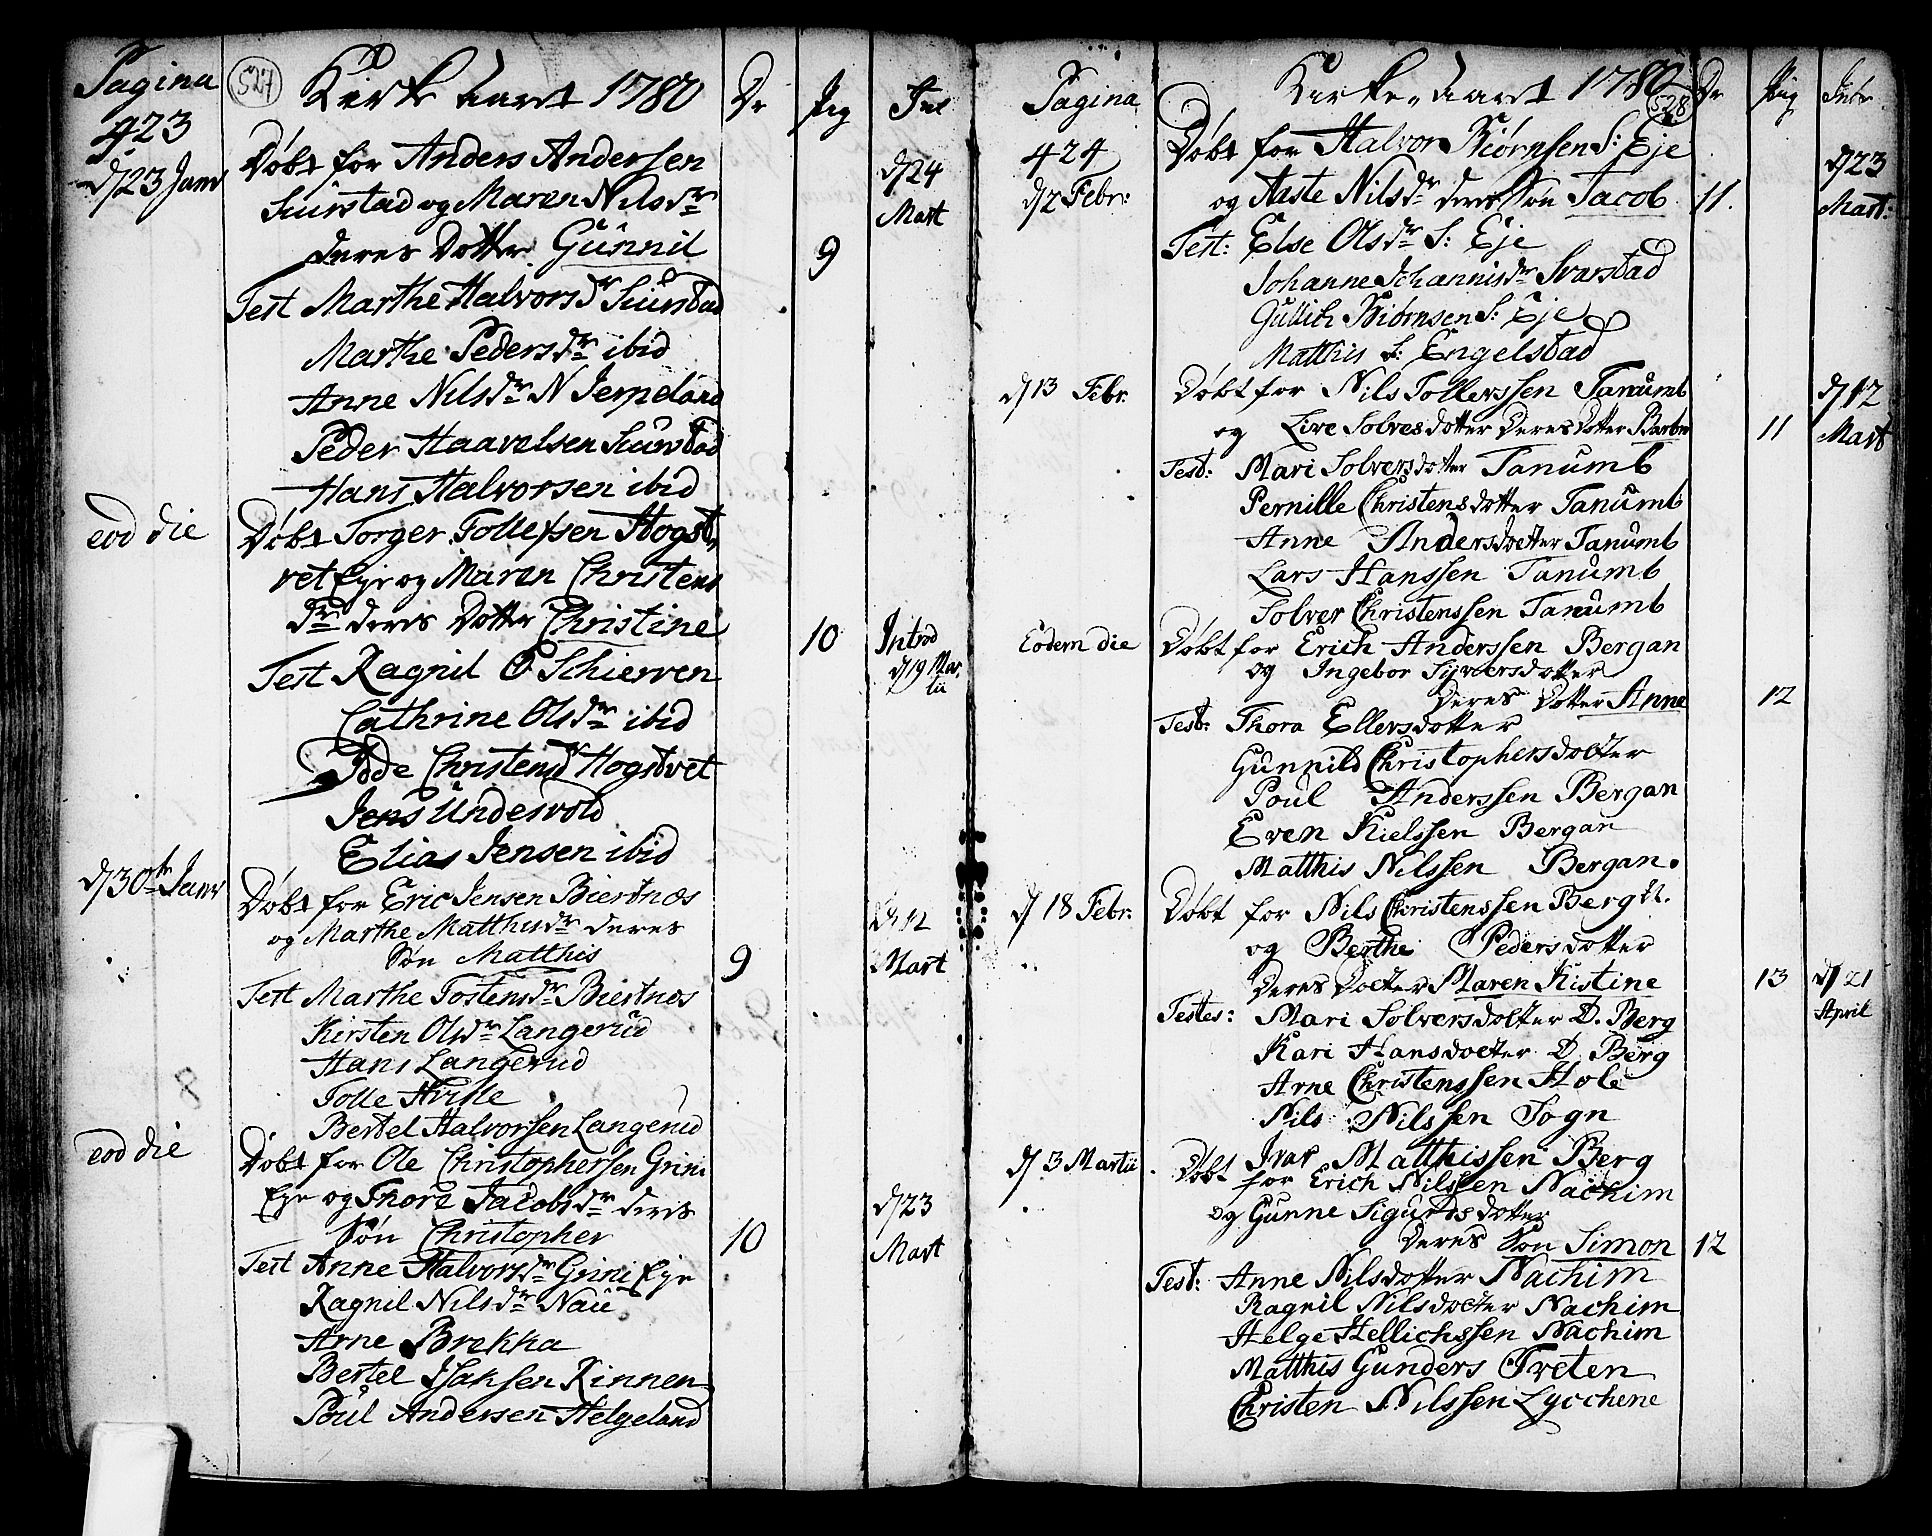 Pagina
423
527
Kirke aaret 1780
Dr
Pig
Int
d/23 Janr
Døbt for Anders Andersen
Suurstad og Maren Nilsdr
deres Dotter Gunnil
9
d/24
Mart
Test Marthe Halvorsdr Suurstad
Marthe Pedersdr ibid
Anne Nilsdr N Jerpelaad
Peder Haavelsen Suurstad
Hans Halvorsen ibid
eod die
Døbt Torger Tollefsen Hogst,
vet Eje og Maren Christens
dr deres Dotter Christine
10
Introd
d/19 Mar,
tii
Test Ragnil O Schierven
Cathrine Olsdr ibid
Christensdr Hogstvet
Jens Undersvold
Elias Jensen ibid
d/30te Janr
Døbt for Eric Jensen Biertnæs
og Marthe Matthisdr deres
Søn Matthis
9
d/12
Mart
Test Marthe Tostensdr Biertnæs
Kirsten Olsdr Langerud
Hans Langerud
Tolle Hville
Bertel Halvorsen Langerud
8
eod die
Døbt for Ole Christophersen Grini
Eje og Thore Jacobsdr deres
Søn Christopher
10
d/23
Mart
Test Anne Halvorsdr Grini Eje
Ragnil Nilsdr Naü
Arne Brekka
Bertel Isaksen Rinnen
Poul Andersen Helgeland
Pagina
424
Kirke-aaret 1780
528
Dr
Pig
Intr
d/2 Febr:
Døbt for Halvor Biørnsen S: Eje
og Aaste Nilsdr deres Søn Jacob
11.
d/23
Mart:
Test: Else Olsdr S: Eje
Johanne Johannisdr Svarstad
Gullich Biørnsen S: Eje
Matthis S: Engelstad
d/13 Febr.
Døbt for Nils Tollerssen Tanumb
og Live Solvesdotter Deres Dotter Barbro
11
d/12
Mart
Test: Mari Solversdotter Tanumb
Pernille Christensdotter Tanumb
Anne Andersdotter Tanumb
Lars Hanssen Tanumb
Solver Christenssen Tanumb
Eodem die
Døbt for Erich Anderssen Bergan
og Ingebor Syversdotter
Deres Dotter Anne
12
Test: Thora Ellersdotter
Gunnild Christophersdotter
Poul Anderssen Bergan
Even Kielssen Bergan
Matthis Nilssen Bergan.
d/18 Febr.
Døbt for Nils Christenssen Berg N.
og Berthe Pedersdotter
Deres Dotter Maren Kistine
13
d/21
April
Testes: Mari Solversdotter D. Berg
Kari Hansdotter D. Berg
Arne Christenssen Hole
Nils Nilssen Sogn
Ivar Matthissen Berg
d/3 Martii
Døbt for Erich Nilssen Nachim
og Gunne Sigurdsdotter
Deres Søn Simon
12
Test: Anne Nilsdotter Nachim
Ragnil Nilsdotter Nachim
Helge Hellichssen Nachim
Matthis Gunders Tveten
Christen Nilssen Lycchene